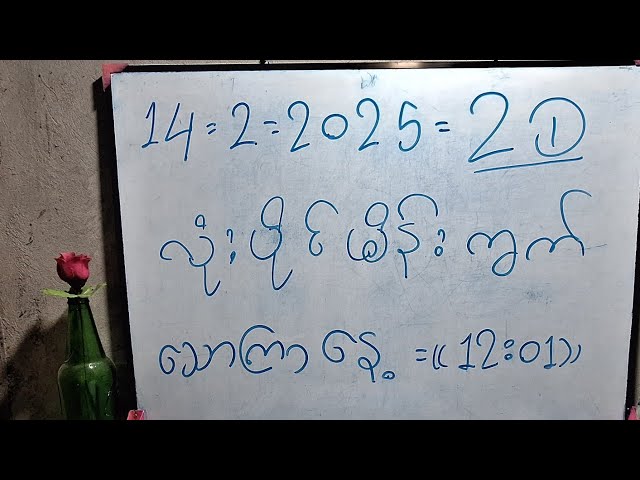 14=2=2025=2D
လုံးပိုင်ထိန်းကွက်
သောကြာနေ့ =((12:01))